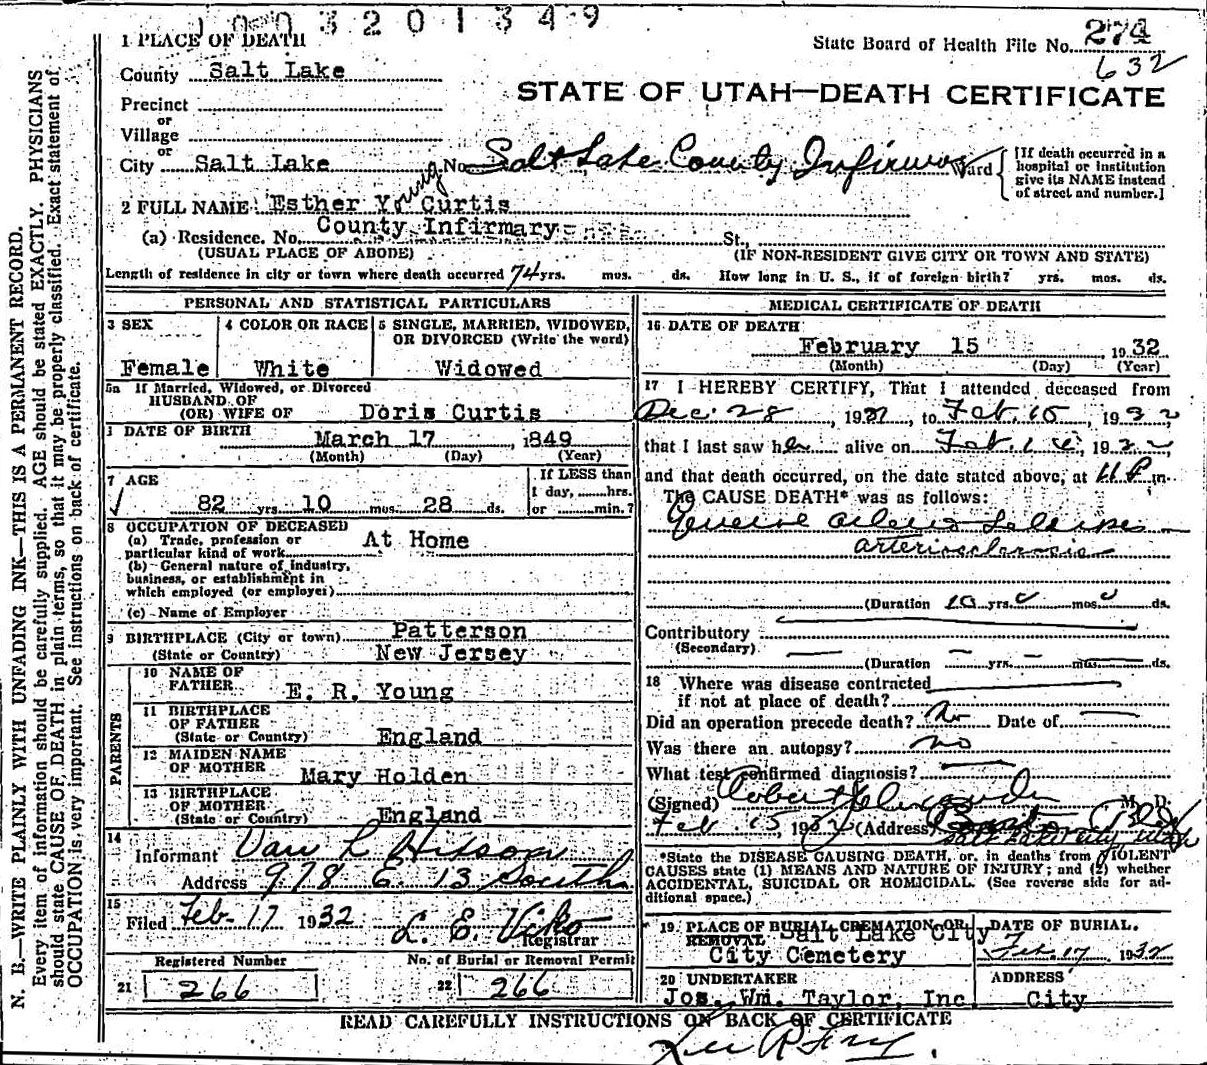 1003201349
1 PLACE OF DEATH
State Board of Health File No. 274
632
County Salt Lake
STATE OF UTAH—DEATH CERTIFICATE
Precinct
or
Village
or
City Salt Lake No. Salt Lake County Infirmary Ward
[If death occurred in a hospital or institution give its NAME instead of street and number.]
2 FULL NAME Esther Young Curtis
(a) Residence. No. County Infirmary St.,
(USUAL PLACE OF ABODE) (IF NON-RESIDENT GIVE CITY OR TOWN AND STATE)
Length of residence in city or town where death occurred 74 yrs. mos. ds. How long in U. S., if of foreign birth? yrs. mos. ds.
PERSONAL AND STATISTICAL PARTICULARS
3 SEX
Female
4 COLOR OR RACE
White
5 SINGLE, MARRIED, WIDOWED,
OR DIVORCED (Write the word)
Widowed
5a If Married, Widowed, or Divorced
HUSBAND OF
(OR) WIFE OF Doris Curtis
DATE OF BIRTH
March 17 1849
(Month) (Day) (Year)
7 AGE
82 yrs 10 mos. 28 ds.
If LESS than
1 day, hrs.
or min.?
8 OCCUPATION OF DECEASED
(a) Trade, profession or
particular kind of work At Home
(b) General nature of industry,
business, or establishment in
which employed (or employer)
(c) Name of Employer
9 BIRTHPLACE (City or town) Patterson
(State or Country) New Jersey
PARENTS
10 NAME OF
FATHER E. R. Young
11 BIRTHPLACE
OF FATHER
(State or Country) England
12 MAIDEN NAME
OF MOTHER Mary Holden
13 BIRTHPLACE
OF MOTHER
(State or Country) England
14
Informant
Address 978 E. 13 South
15
Filed Feb. 17 1932 L. E. Viko
Registrar
Registered Number
21 266
No. of Burial or Removal Permit
22 266
MEDICAL CERTIFICATE OF DEATH
16 DATE OF DEATH
February 15 1932
(Month) (Day) (Year)
17 I HEREBY CERTIFY, That I attended deceased from
Dec. 28, 1931, to Feb. 15, 1932,
that I last saw her alive on Feb. 1932
and that death occurred, on the date stated above, at 11 P m.
The CAUSE DEATH* was as follows:
General
arteriosclerosis
(Duration 10 yrs. 0 mos. 0 ds.
Contributory
(Secondary)
(Duration yrs. mos. ds.
18 Where was disease contracted
if not at place of death?
Did an operation precede death? No Date of
Was there an autopsy? no
What test confirmed diagnosis?
(Signed) Robert M. D.
Feb. 15 1932 (Address)
Salt Lake City Utah
*State the DISEASE CAUSING DEATH, or, in deaths from VIOLENT
CAUSES state (1) MEANS AND NATURE OF INJURY; and (2) whether
ACCIDENTAL, SUICIDAL OR HOMICIDAL. (See reverse side for ad-
ditional space.)
19 PLACE OF BURIAL CREMATION OR
REMOVAL Salt Lake City
City Cemetery
DATE OF BURIAL.
Feb. 17 1932
20 UNDERTAKER
Jos. Wm. Taylor, Inc
ADDRESS
City
READ CAREFULLY INSTRUCTIONS ON BACK OF CERTIFICATE
N. B.—WRITE PLAINLY WITH UNFADING INK—THIS IS A PERMANENT RECORD.
Every item of information should be carefully supplied. AGE should be stated EXACTLY. PHYSICIANS
should state CAUSE OF DEATH in plain terms, so that it may be properly classified. Exact statement of
OCCUPATION is very important. See instructions on back of certificate.